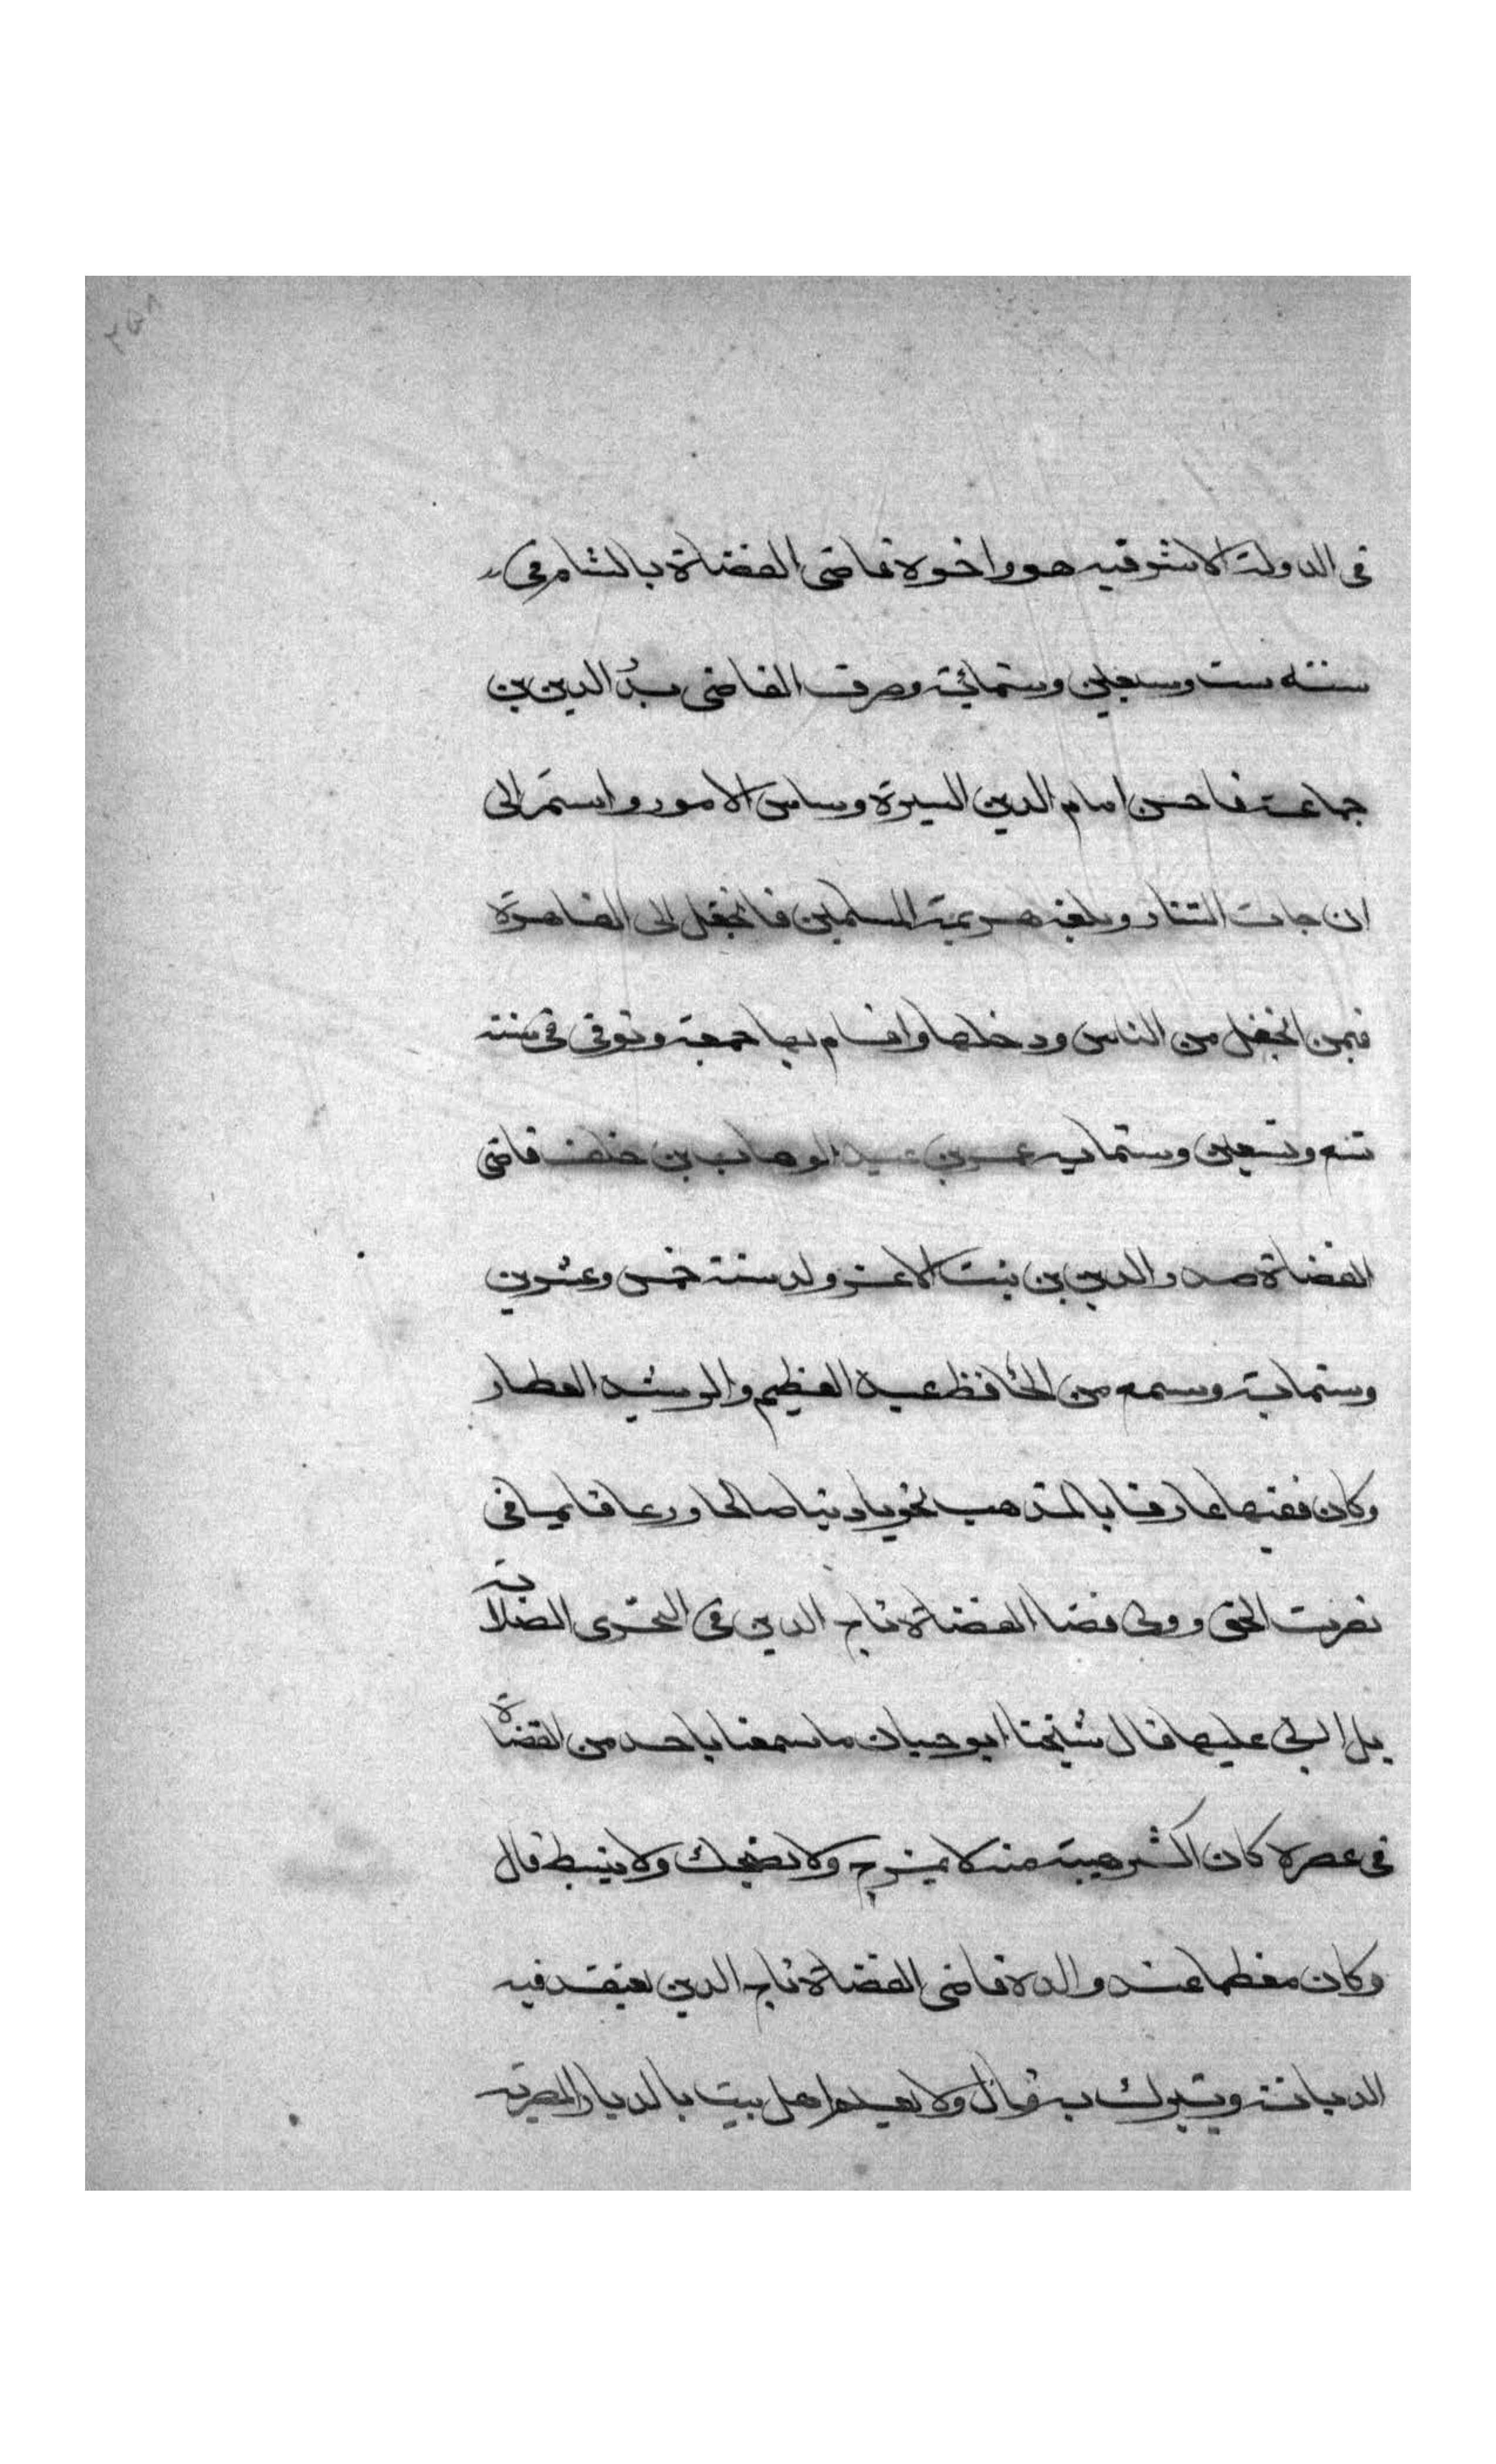 ٢٥٨
فى الدولة الاشرفيه هو واخوه قاضى القضاة بالشام فى
سنة ست وسبعين وستمائة وصرف القاضى بدر الدين بن
جماعة فاحسن امام الدين السيرة وساس الامور واستمر الى
ان جات التتار وبلغه هزيمة المسلمين فانجفل الى القاهرة
فيمن انجفل من الناس ودخلها واقام بها جمعة وتوفى فى سنة
تسع وتسعين وستمايه عمر بن عبد الوهاب بن خلف قاضى
القضاة صدر الدين بن بنت الاعز ولد سنة خمس وعشرين
وستماية وسمع من الحافظ عبد العظيم والرشيد العطار
وكان فقيها عارفا بالمذهب نحويا دينا صالحا ورعا قايما فى
نصرت الحق وولى قضا القضاة تاج الدين فى التحرى الصلابة
بل اربى عليه قال شيخنا ابو حيان ما سمعنا باحد من القضاة
فى عصره كان اكثر هيبة منه لا يمزح ولا يضحك ولا ينبسط قال
وكان معظما عند والده قاضى القضاة تاج الدين يعتقد فيه
الديانة ويتبرك به قال ولا يعلم اهل بيت بالديار المصرية